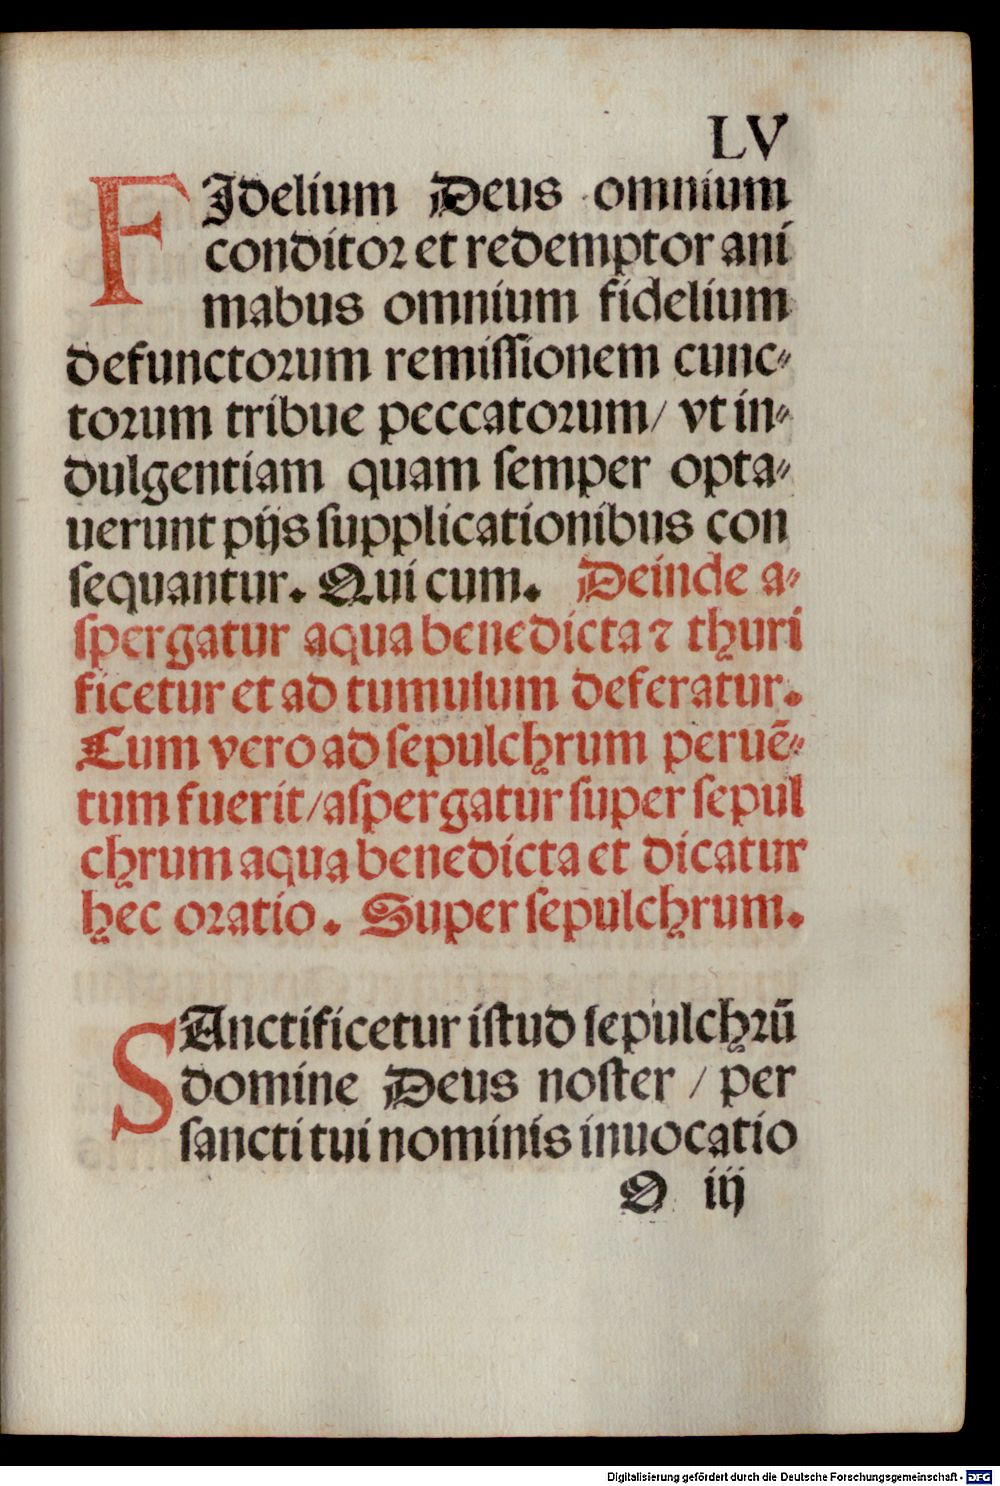 LV
FIdelium Deus omnium
conditor et redemptor ani
mabus omnium fidelium
defunctorum remissionem cunc⸗
torum tribue peccatorum/ vt in⸗
dulgentiam quam semper opta⸗
uerunt pijs supplicationibus con
sequantur. Qui cum. Deinde a⸗
spergatur aqua benedicta ⁊ thuri
ficetur et ad tumulum deferatur.
Cum vero ad sepulchrum peruē⸗
tum fuerit/aspergatur super sepul
chrum aqua benedicta et dicatur
hec oratio. Super sepulchrum.
SAnctificetur istud sepulchrū
domine Deus noster / per
sancti tui nominis inuocatio
O iij
Digitalisierung gefördert durch die Deutsche Forschungsgemeinschaft - DFG